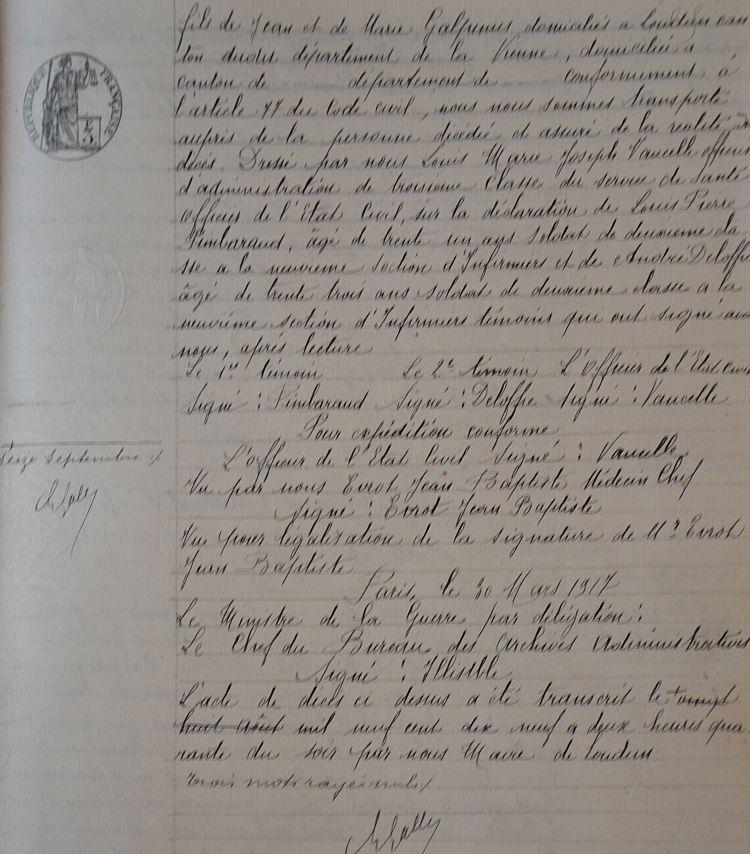 fils de Jean et de Marie Galpenus, domiciliés à Loudun can
ton dudit département de la Vienne, domicilié à
canton de département de conformément à
l'article 77 du Code civil, nous nous sommes transporté
auprès de la personne décédé et assuré de la réalité du
décès. Dressé par nous Louis Marie Joseph Vaucelle officier
d'administration de troisième classe du service de Santé
officier de l'Etat Civil, sur la déclaration de Louis Pierre
âgé de trente un ans soldat de deuxième cla
sse a la neuvième section d'Infirmiers et de André Deloffre
âgé de trente trois ans soldat de deuxième classe a la
neuvième section d'Infirmiers témoins qui ont signé avec
nous, après lecture
Le 1er témoin Le 2e témoin L'officier de l'Etat civil
Signé : Signé : Deloffre Signé : Vaucelle
Pour expédition conforme
L'officier de l'Etat Civil Signé : Vaucelle
Vu par nous Evrot Jean Baptiste Médecin Chef
Signé : Evrot Jean Baptiste
Vu pour légalisation de la signature de Mr Evrot
Jean Baptiste
Paris, le 30 Mars 1917
Le Ministre de la Guerre par délégation :
Le Chef du Bureau des Archives Administratives
Signé : Illisible
L'acte de décès ci dessus a été transcrit le vingt
huit août mil neuf cent dix neuf a deux heures qua
rante du soir par nous Maire de Loudun
trois mots rayés nuls
REPUBLIQUE FRANÇAISE
seize Septembre